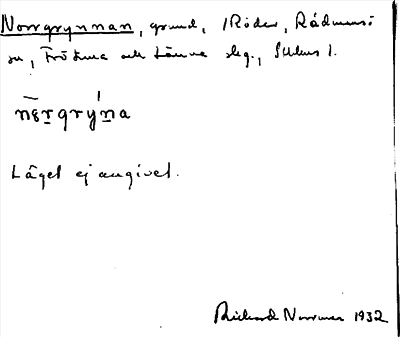 Norrgrynnan, grund, Röder, Rådmansö
sn, Frötuna och Länna skg., Sthlms l.
Läget ej angivet.
Richard Norrman 1932